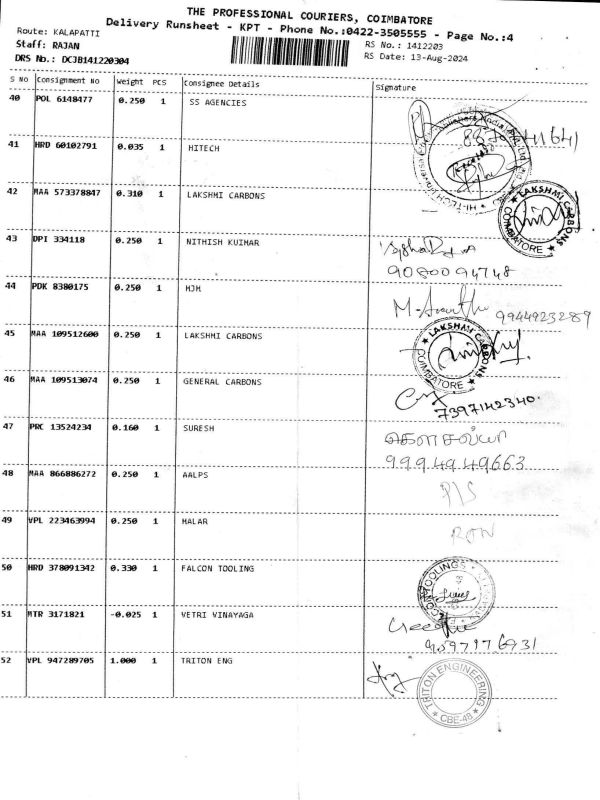 THE PROFESSIONAL COURIERS, COIMBATORE
Delivery Runsheet - KPT - Phone No.:0422-3505555 - Page No.:4
Route: KALAPATTI
RS No.: 1412203
Staff: RAJAN
RS Date: 13-Aug-2024
DRS No.: DCJB141220304
S NO Consignment NO Weight PCS Consignee Details Signature
40 POL 6148477 0.250 1 SS AGENCIES
41 HRD 60102791 0.035 1 HITECH
42 MAA 573378847 0.310 1 LAKSHMI CARBONS
LAKSHMI CARBONS COIMBATORE
43 DPI 334118 0.250 1 NITHISH KUIHAR
9080094748
44 PDK 8380175 0.250 1 MJM
9944923289
45 MAA 109512600 0.250 1 LAKSHMI CARBONS
LAKSHMI CARBONS COIMBATORE
46 MAA 109513074 0.250 1 GENERAL CARBONS
7397142340.
47 PRC 13524234 0.160 1 SURESH
கௌசல்யா
9994949663
48 MAA 866886272 0.250 1 AALPS
P/S
49 VPL 223463994 0.250 1 MALAR
50 HRD 378091342 0.330 1 FALCON TOOLING
51 MTR 3171821 -0.025 1 VETRI VINAYAGA
52 VPL 947289705 1.000 1 TRITON ENG
TRITON ENGINEERING
CBE-48